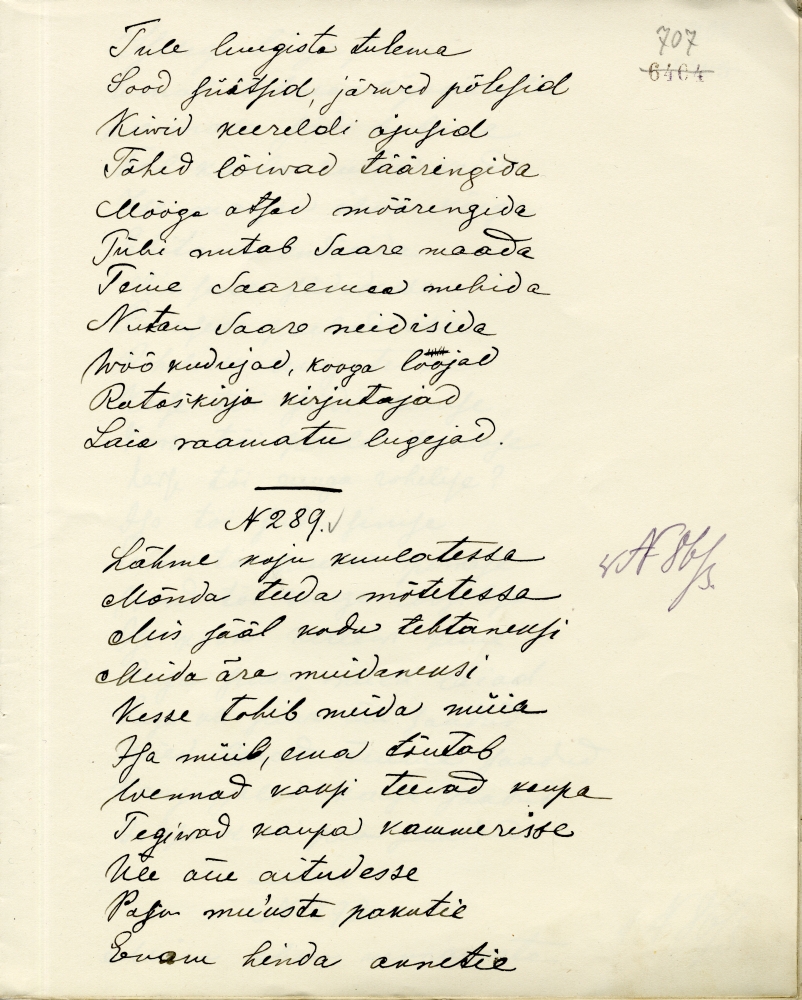 707
6464
Tule luugista tulema
Sood süütsid, järwed põlesid
Kiwid keereldi ajusid
Tähed lõiwad tääringida
Mõõga otsad mõõrengida
Pühi nutab Saare maada
Teine Saaremaa mehida
Nutan Saare neidisida
Wöö kudujad, kooga loojad
Rataskirja kirjutajad
Laia raamatu lugejad.
N 289.
Lähme koju kuulatessa
Mõnda teeda mõtetessa
Mis sääl kodu tehtaneksi
Meida ära muidaneksi
Kesse tohib meida müia
Isa müib, ema tõutab
Wennad kaksi teewad kaupa
Tegiwad kaupa kammerisse
Üle õue aitudesse
Paju muusta pakutie
Enam hinda annetie